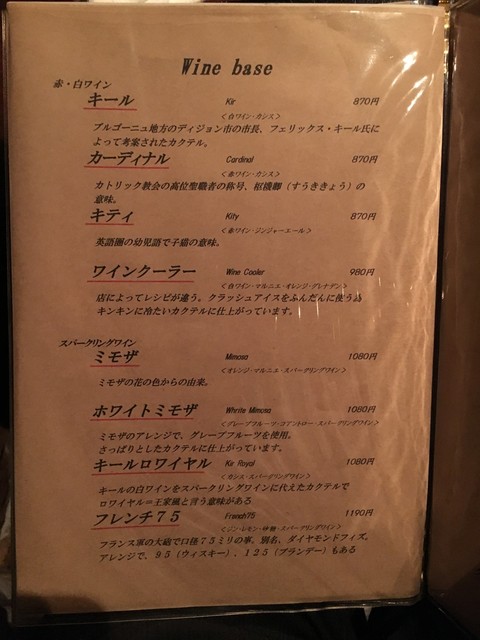 Wine base
赤・白ワイン
キール Kir 870円
<白ワイン・カシス>
ブルゴーニュ地方のディジョン市の市長、フェリックス・キール氏に
よって考案されたカクテル。
カーディナル Cardinal 870円
<赤ワイン・カシス>
カトリック教会の高位聖職者の称号、枢機卿(すうききょう)の
意味。
キティ Kity 870円
<赤ワイン・ジンジャーエール>
英語圏の幼児語で子猫の意味。
ワインクーラー Wine Cooler 980円
<白ワイン・マルニエ・オレンジ・グレナデン>
店によってレシピが違う。クラッシュアイスをふんだんに使う為
キンキンに冷たいカクテルに仕上がっています。
スパークリングワイン
ミモザ Mimosa 1080円
<オレンジ・マルニエ・スパークリングワイン>
ミモザの花の色からの由来。
ホワイトミモザ Whrite Mimosa 1080円
<グレープフルーツ・コアントロー・スパークリングワイン>
ミモザのアレンジで、グレープフルーツを使用。
さっぱりとしたカクテルに仕上がっています。
キールロワイヤル Kir Royal 1080円
<カシス・スパークリングワイン>
キールの白ワインをスパークリングワインに代えたカクテルで
ロワイヤル=王家風と言う意味がある
フレンチ75 French75 1190円
<ジン・レモン・砂糖・スパークリングワイン>
フランス軍の大砲で口径75ミリの事。別名、ダイヤモンドフィズ。
アレンジで、95(ウィスキー)、125(ブランデー)もある